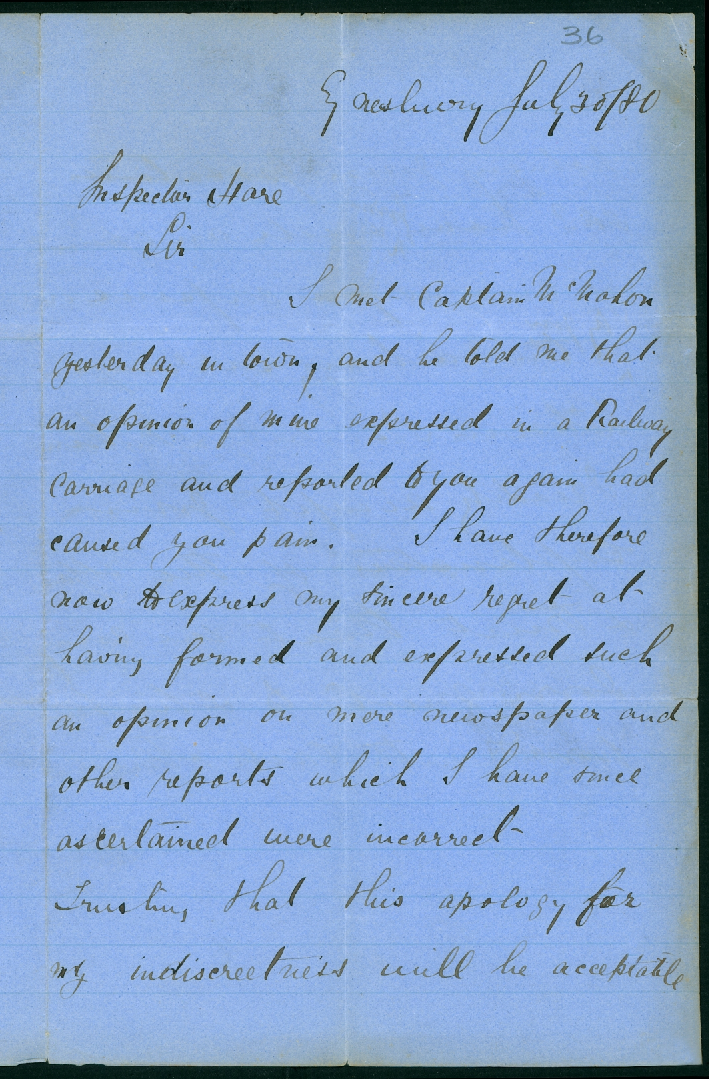 36
Eynesbury July 30/80
Inspector Hare
Sir
I met Captain McMahon
yesterday in town, and he told me that
an opinion of mine expressed in a Railway
Carriage and reported to you again had
caused you pain. I have therefore
now to express my sincere regret at
having formed and expressed such
an opinion on mere newspaper and
other reports which I have since
ascertained were incorrect
Trusting that this apology for
my indiscreetness will be acceptable